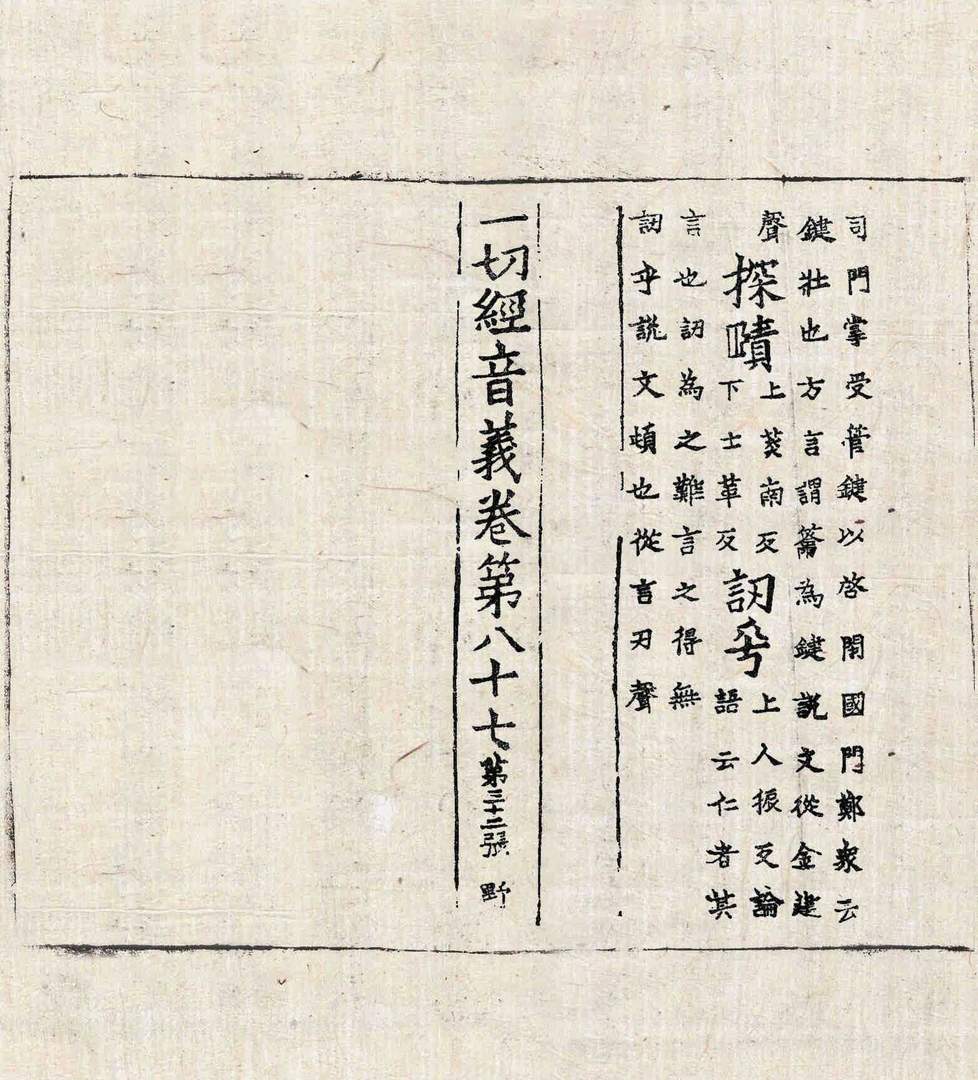 司門掌受管鍵以啓閇國門鄭衆云
鍵壯也方言謂籥為鍵說文從金建
聲
探嘖
上菼南反
下士革反
訒乎
上人振反論
語云仁者其
言也訒為之難言之得無
訒乎說文頓也從言刃聲
一切經音義卷第八十七 第三十二張 野